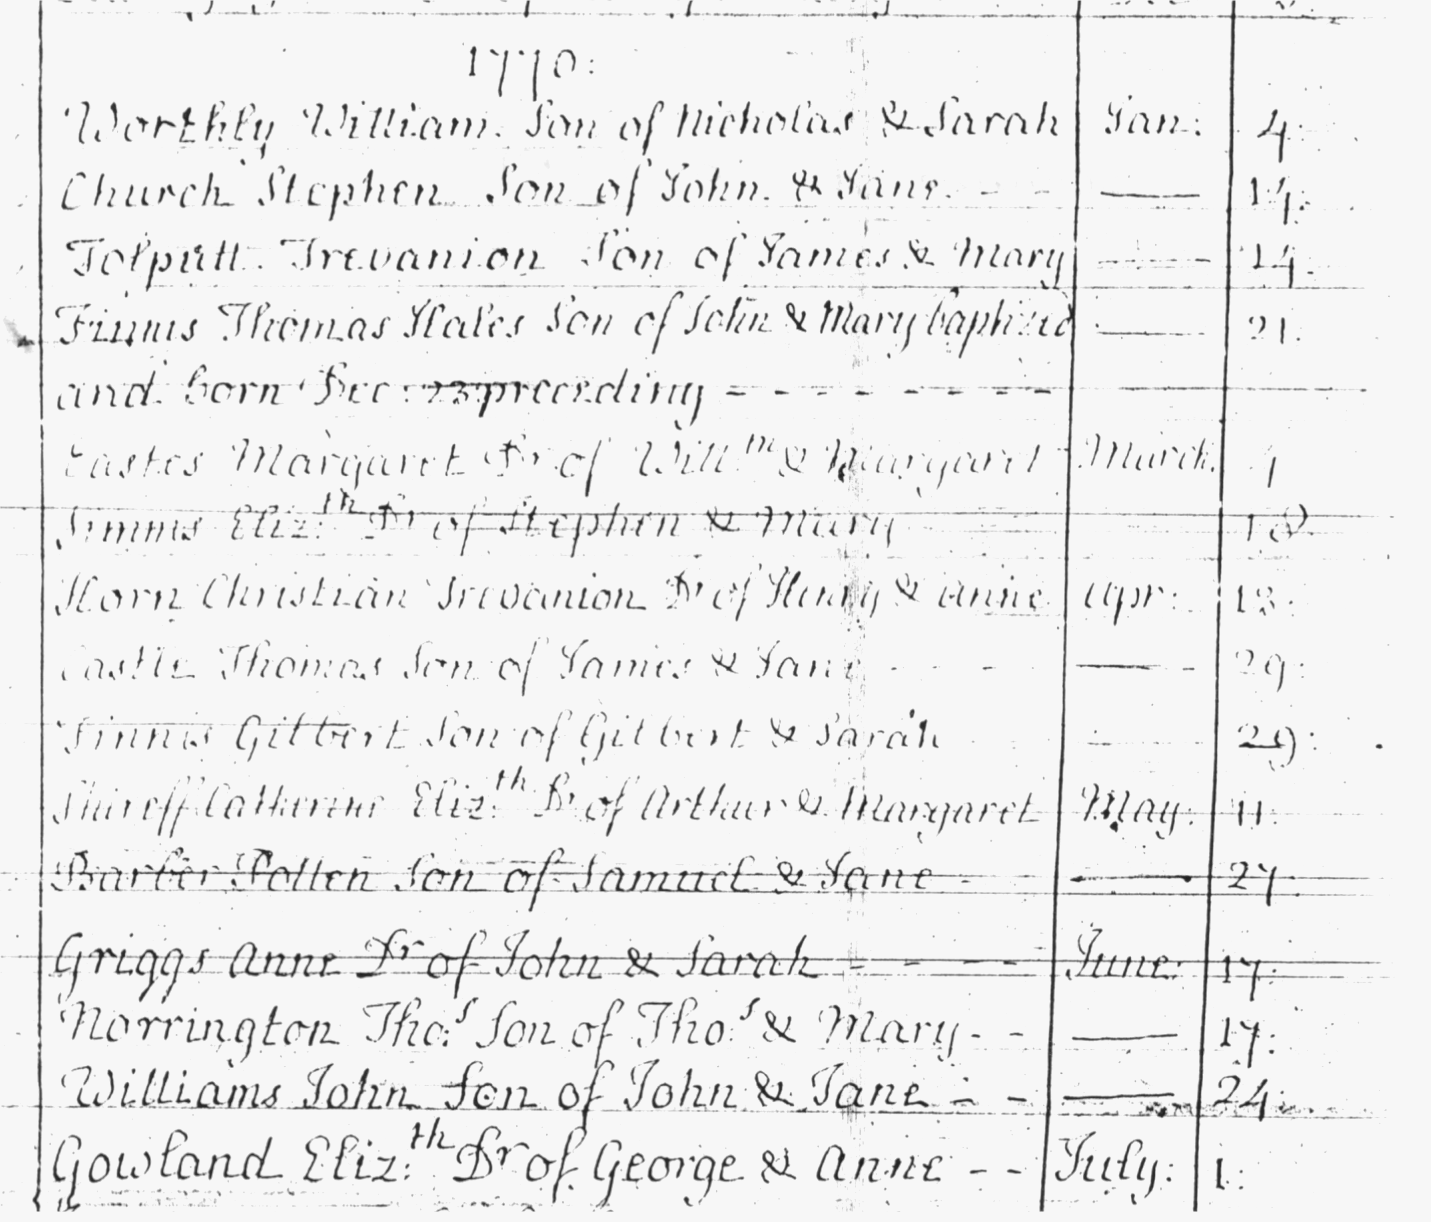 1770:
Worthly William Son of Nicholas & Sarah Jan: 4:
Church Stephen Son of John & Jane - - — 14:
Tolputt Trevanion Son of James & Mary — 14:
Finnis Thomas Hales Son of John & Mary baptized — 21:
and born Dec: 23 preceding - - - - - - - -
Eastes Margaret Dr of Will:m & Margaret March
Simms Eliz:th Dr of Stephen & Mary 18
Horn Christian Trevanion Dr of Henry & Anne Apr: 13:
Castle Thomas Son of James & Jane - - - — 29:
Finnis Gilbert Son of Gilbert & Sarah — 29:
Shireff Catherine Eliz:th Dr of Arthur & Margaret May: 11:
Barber Pollen Son of Samuel & Jane - — 27
Griggs Anne Dr of John & Sarah - - - - June: 17:
Norrington Tho:s Son of Tho:s & Mary - - — 17:
Williams John Son of John & Jane - - — 24:
Gowland Eliz:th Dr of George & Anne - - July: 1: